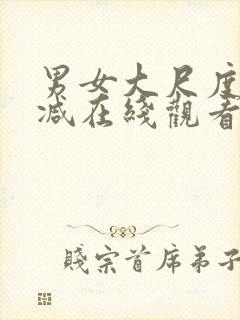 男女大尺度
减在綫觀看
賤宗首席弟子